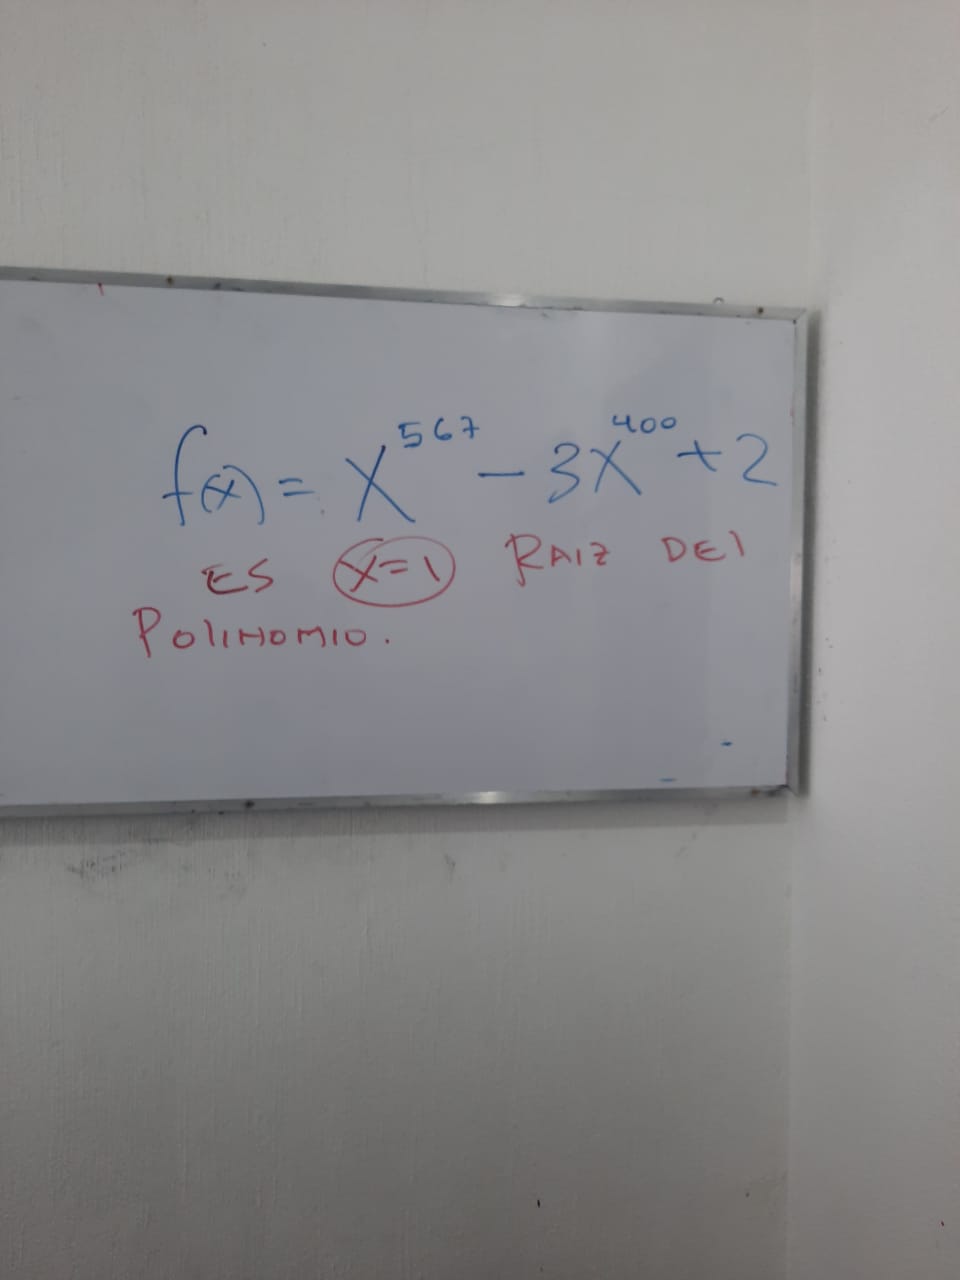 f(x) = x⁵⁶⁷ - 3x⁴⁰⁰ + 2
ES x=1 RAIZ DEl
POlINOMIO.